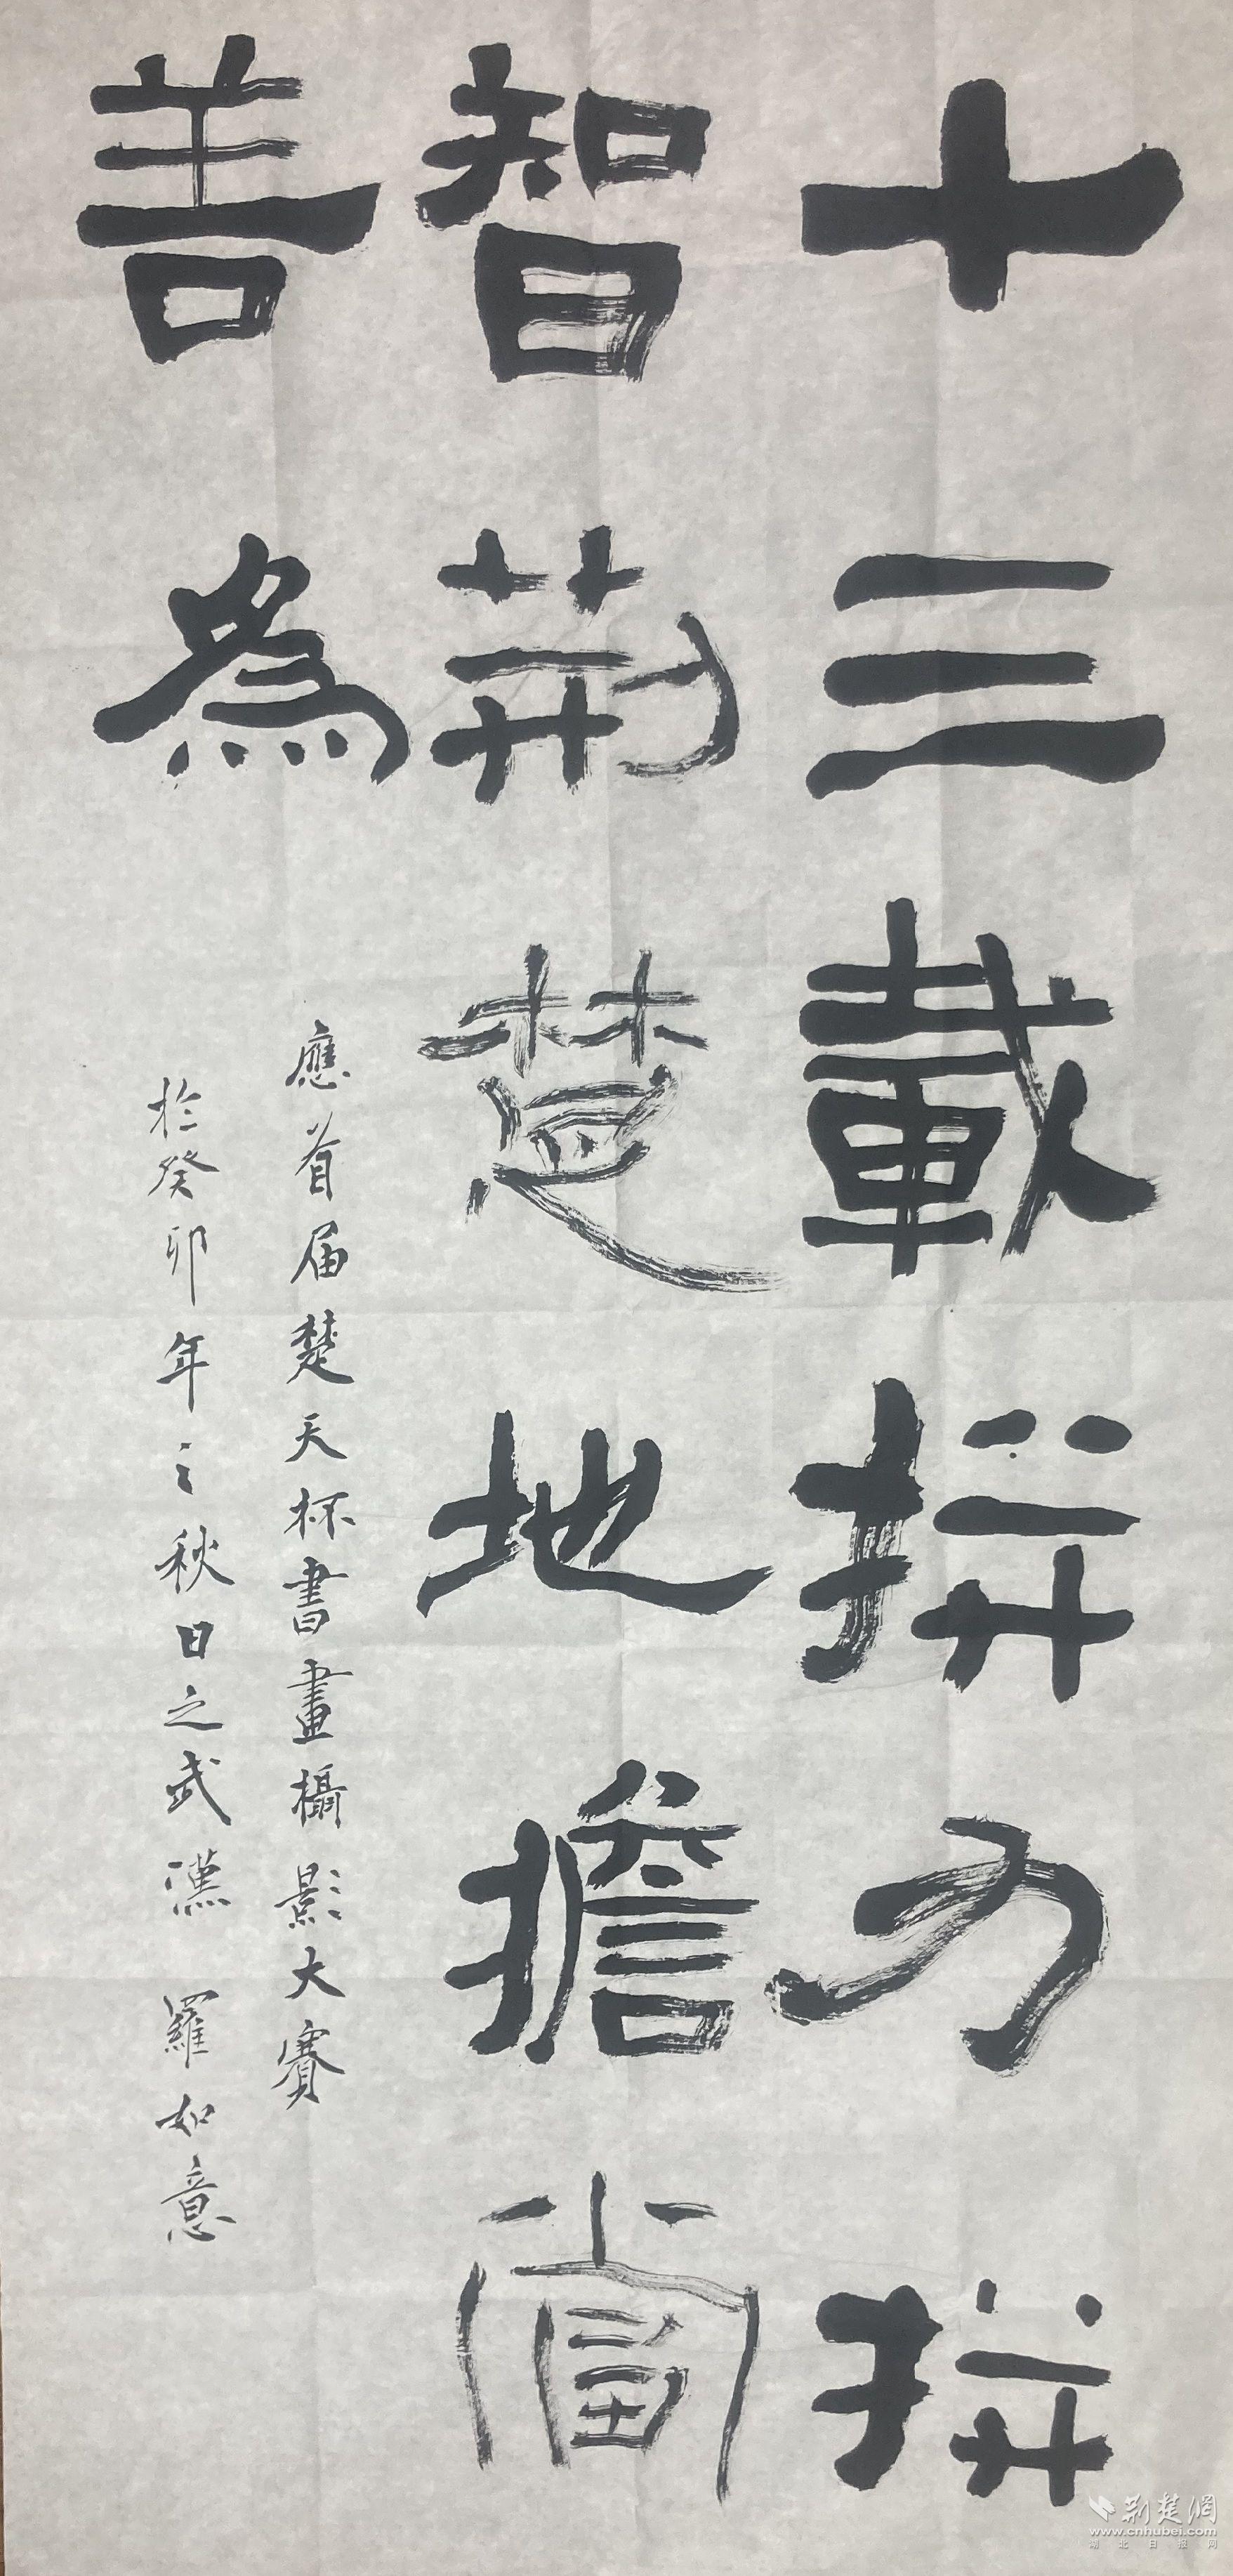 十三載拼力拼
智荊楚地擔當
善為
應首屆楚天杯書畫攝影大賽
於癸卯年之秋日之武漢 羅如意
荆楚網
www.cnhubei.com
湖北日报网